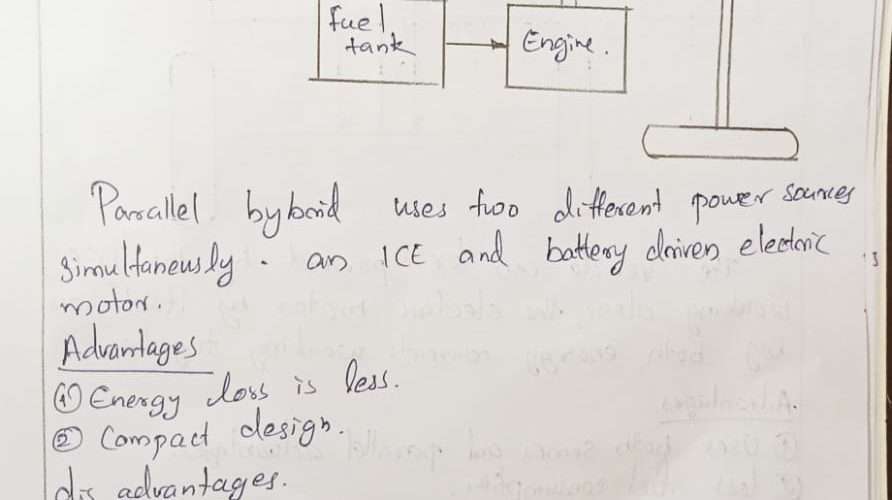 fuel
tank
Engine.
Parallel hybrid uses two different power sources
simultaneusly. an ICE and battery driven electric
motor.
Advantages
① Energy loss is less.
② Compact design.
dis advantages.